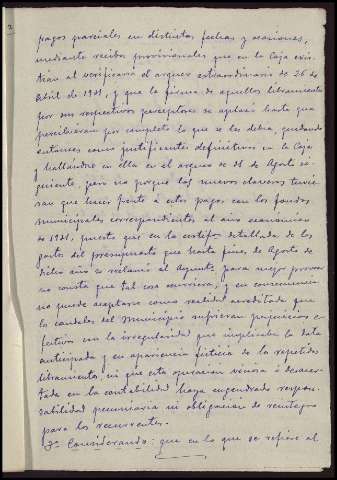 pagos parciales en distintas fechas y ocasiones,
mediante recibos provisionales que en la Caja exis
tían al verificarse el arqueo extraordinario de 26 de
Abril de 1921, y que la firma de aquellos libramientos
por sus respectivos perceptores se aplazó hasta que
percibieran por completo lo que se les debía, quedando
entonces como justificantes definitivos en la Caja
y hallándose en ella en el arqueo de 31 de Agosto si-
guiente, pero no porque los nuevos claveros tuvie
ran que hacer frente a estos pagos con los fondos
municipales correspondientes al año económico
de 1921, puesto que en la certifon detallada de los
gastos del presupuesto que hasta fines de Agosto de
dicho año se reclamó al Ayuntto para mejor proveer
no consta que tal cosa ocurriera, y en consecuencia
no puede aceptarse como realidad acreditada que
los caudales del Municipio sufrieran perjuicios e-
fectivos con la irregularidad que implicaba la data
anticipada y en apariencia ficticia de los repetidos
libramientos, ni que esta operación viciosa o desacer
tada en la contabilidad haya engendrado respon-
sabilidad pecuniaria ni obligación de reintegro
para los recurrentes.
Considerando: que en lo que se refiere al